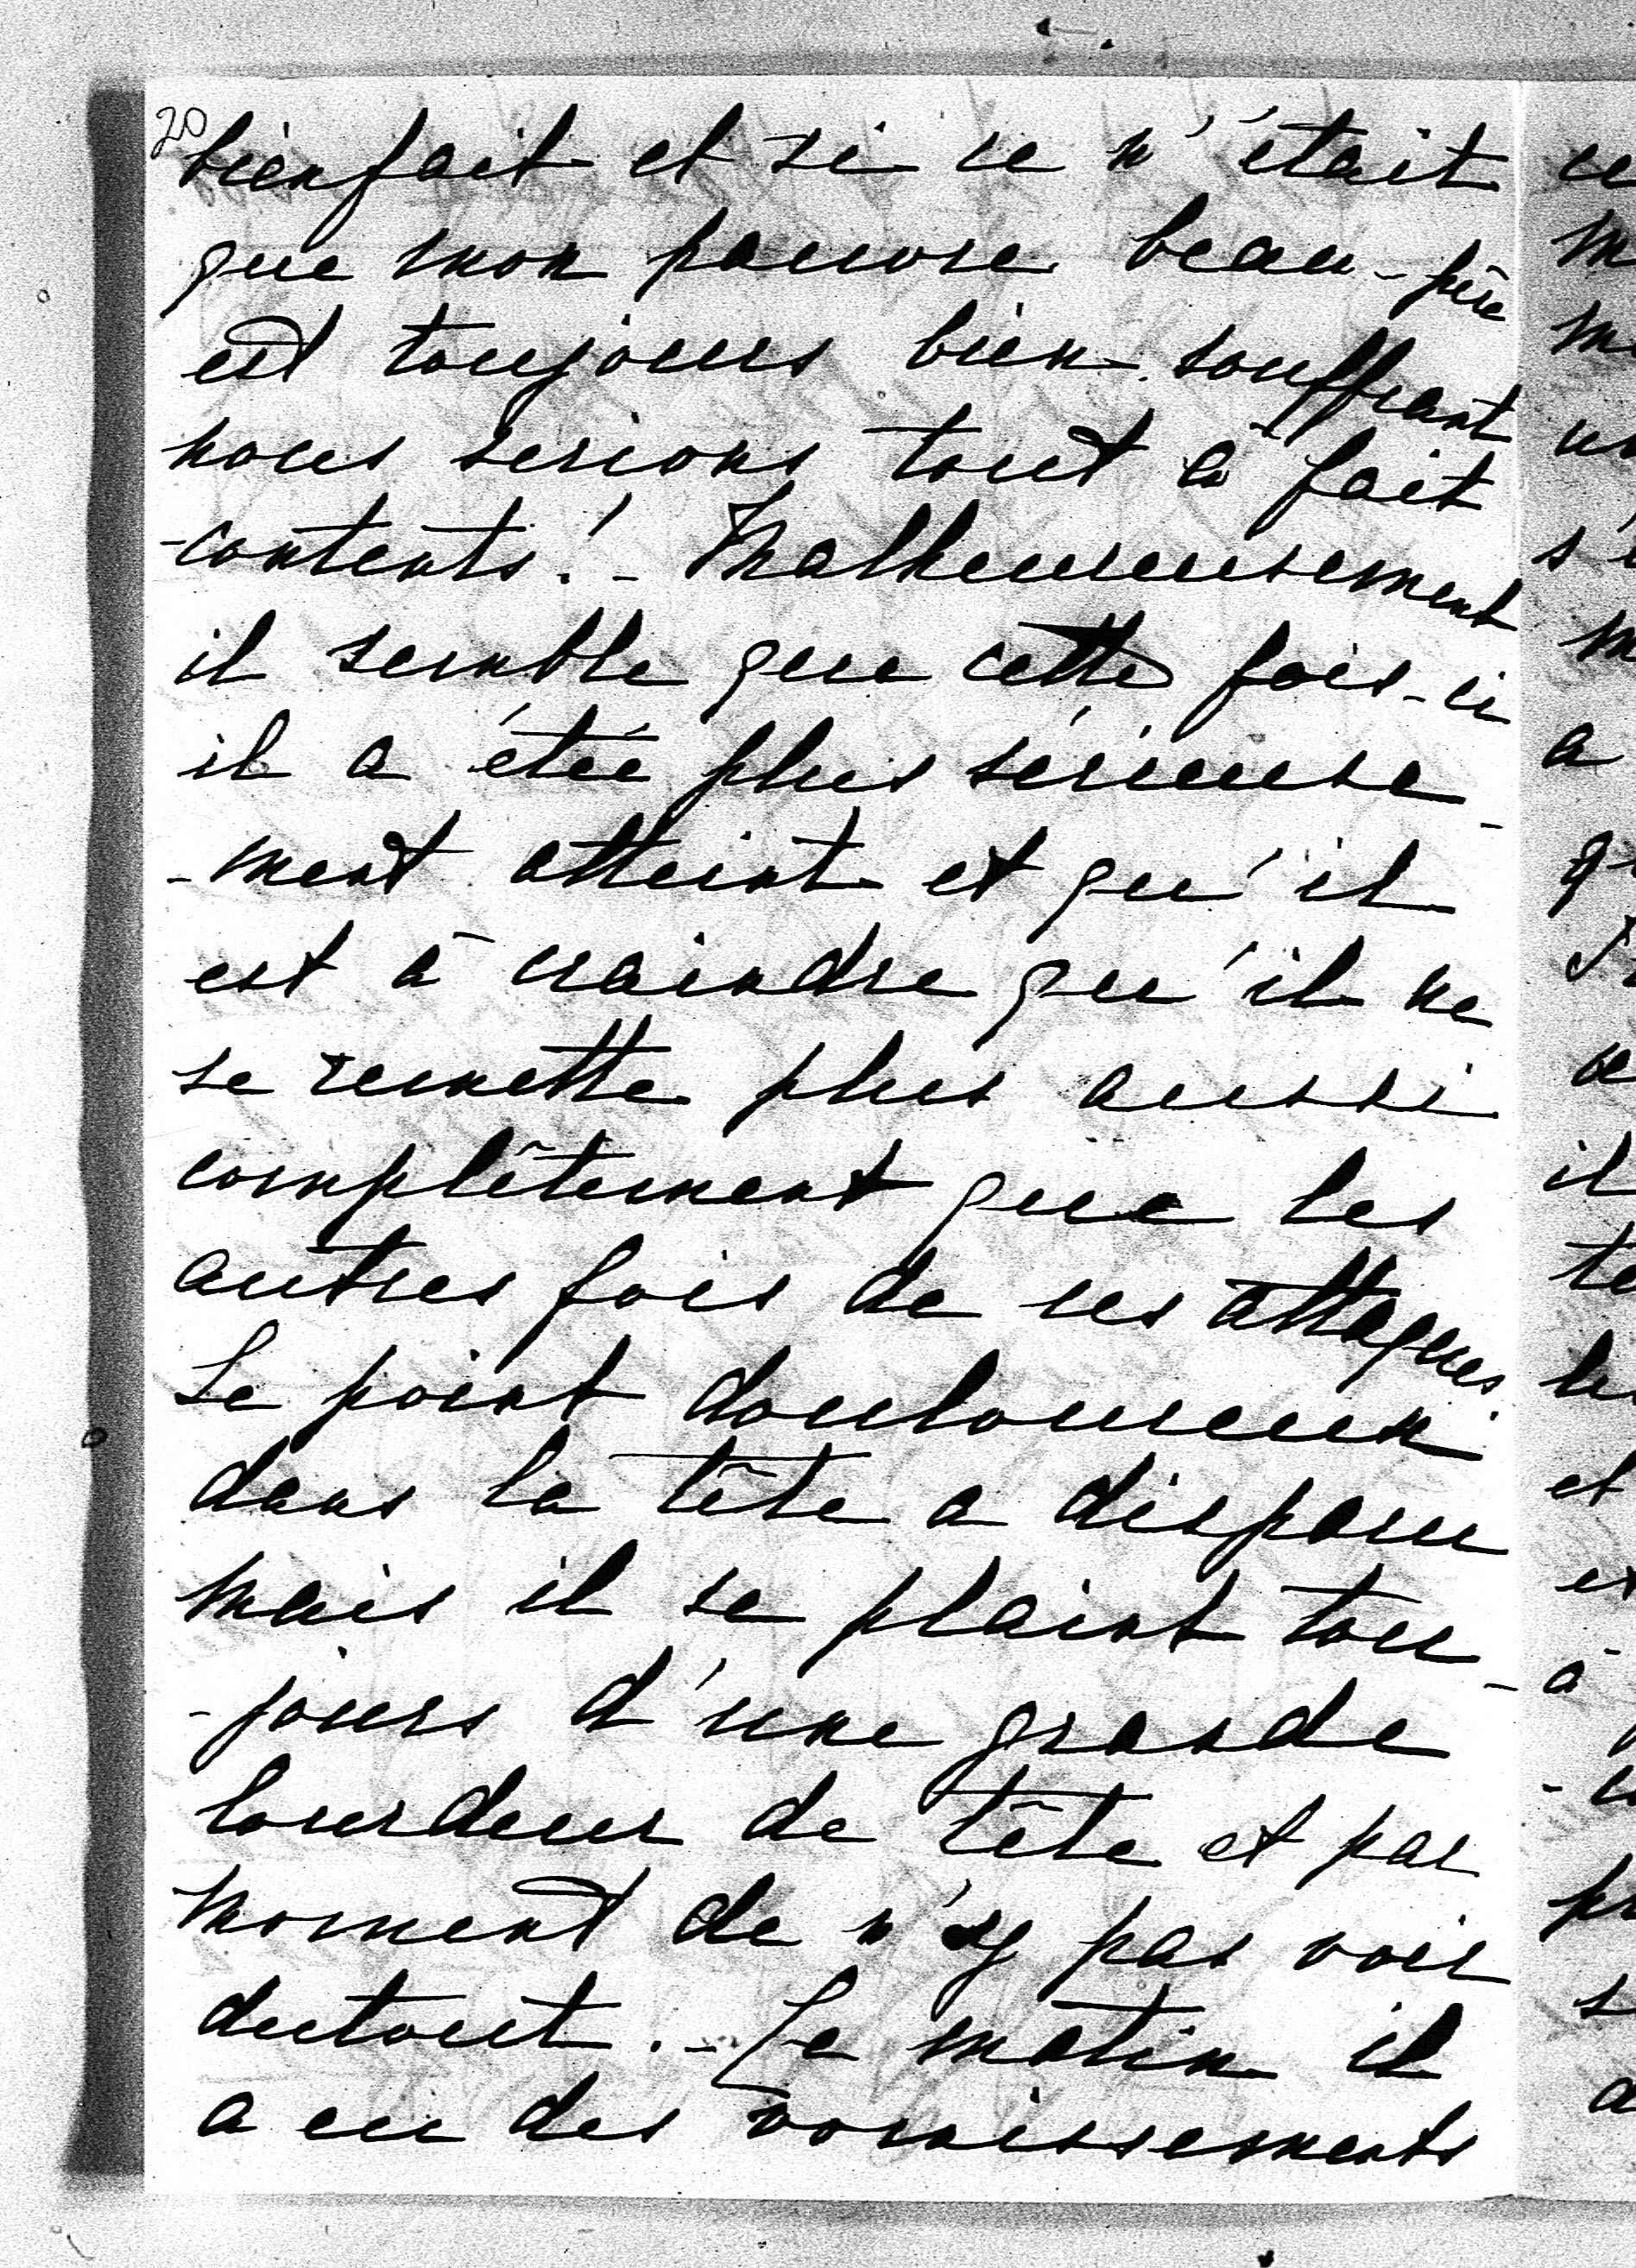 20
bienfait et si ce n'était
que mon pauvre beau-père
est toujours bien souffrant
nous serions tout à fait
-contents! - Malheureusement
il semble que cette fois-ci
il a étée plus sérieuse-
-ment atteint et qu'il
est à craindre qu'il ne
se remette plus aussi
complêtement que les
autres fois de ces attaques.
Le point douloureux
dans la tête a disparu
mais il se plaint tou-
-jours d'une grande
lourdeur de tête et par
moment de n'y pas voir
dutout. - Le matin il
a eu des vomissements